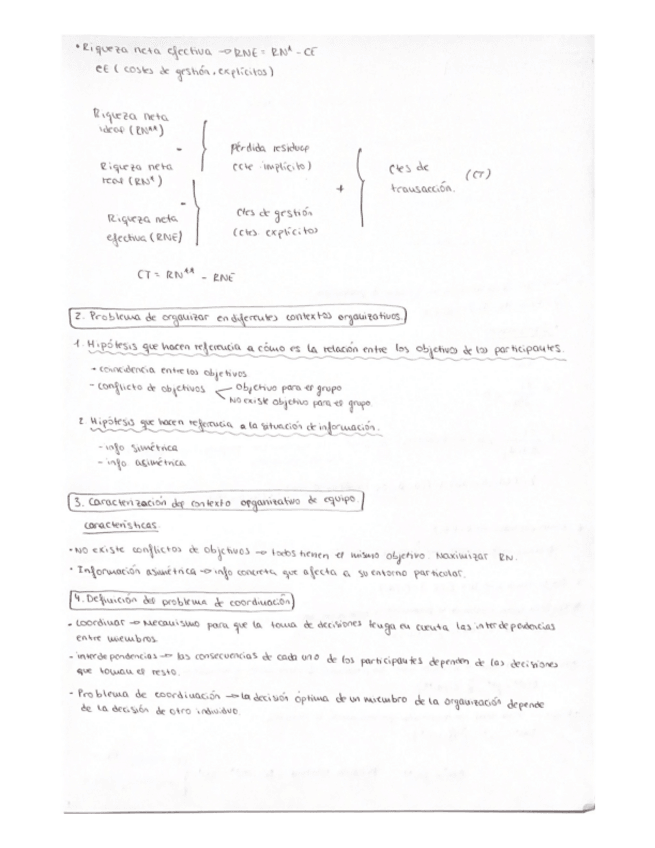 • Riqueza neta efectiva → RNE = RN^ - CE
CE ( costes de gestión, explícitos)
Riqueza neta
ideal (RN^^)
-
pérdida residual
(cte implícito)
Riqueza neta
real (RN^)
+
ctes de
transacción. (CT)
-
ctes de gestión
(ctes explícitos
Riqueza neta
efectiva (RNE)
CT = RN^^ - RNE
2. Problema de organizar en diferentes contextos organizativos.
1. Hipótesis que hacen referencia a cómo es la relación entre los objetivos de los participantes.
- coincidencia entre los objetivos
- conflicto de objetivos
objetivo para el grupo
No existe objetivo para el grupo
2. Hipótesis que hacen referencia a la situación de información.
- info simétrica
- info asimétrica
3. Caracterización del contexto organizativo de equipo
características.
• No existe conflictos de objetivos → todos tienen el mismo objetivo. Maximizar RN.
• Información asimétrica → info concreta que afecta a su entorno particular.
4. Definición del problema de coordinación
- Coordinar → Mecanismo para que la toma de decisiones tenga en cuenta las interdependencias
entre miembros.
- interdependencias → las consecuencias de cada uno de los participantes dependen de las decisiones
que toman el resto.
- Problema de coordinación → la decisión óptima de un miembro de la organización depende
de la decisión de otro individuo.